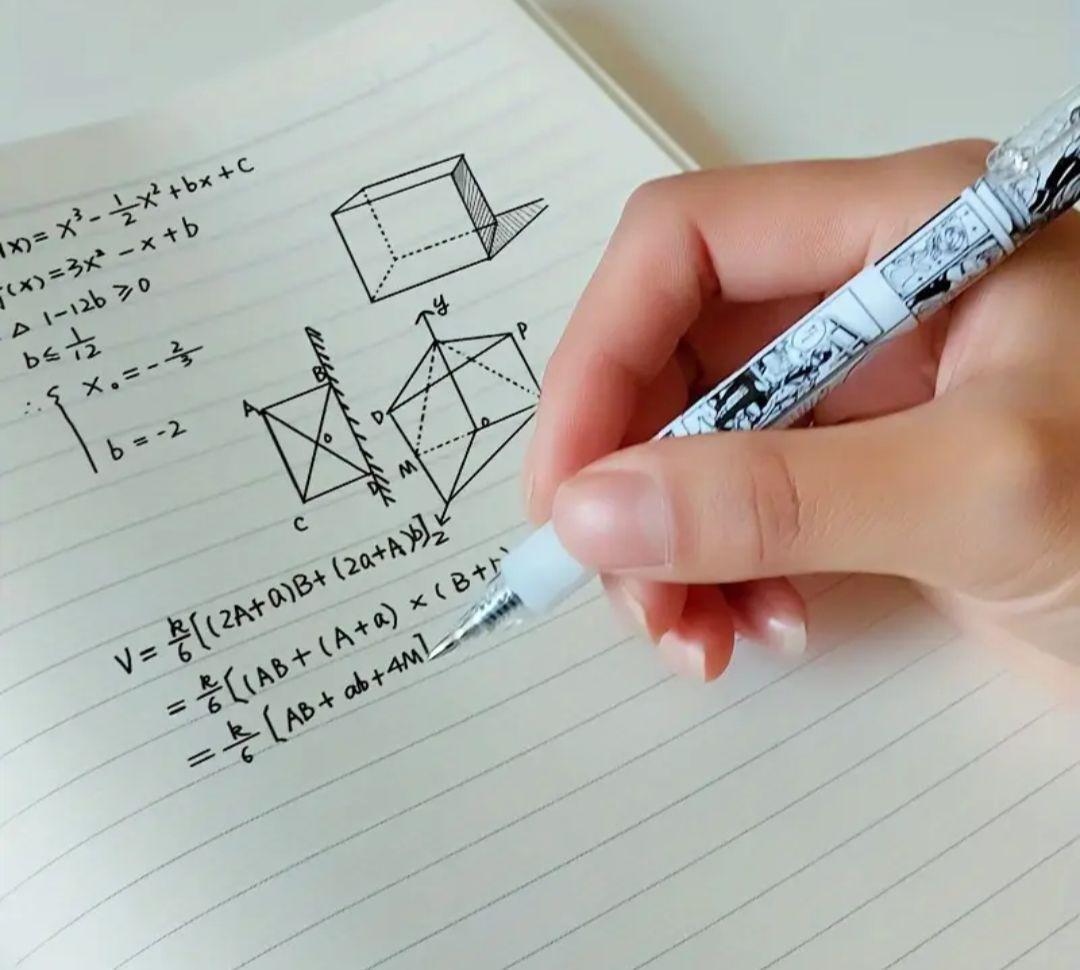 (x) = x³ - 1/2 x² + bx + c
(x) = 3x² - x + b
△ 1-12b ⩾ 0
b ≤ 1/12
∴ { x₀ = - 2/3
b = -2
y
P
A
B
D
O
O
M
D
C
Z
V = k/6 [(2A+a)B + (2a+A)b]
= k/6 [(AB + (A+a) × (B+
= k/6 [AB + ab + 4M]